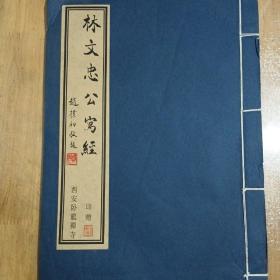 林文忠公寫經
趙樸初敬題
西安臥龍禪寺
印贈